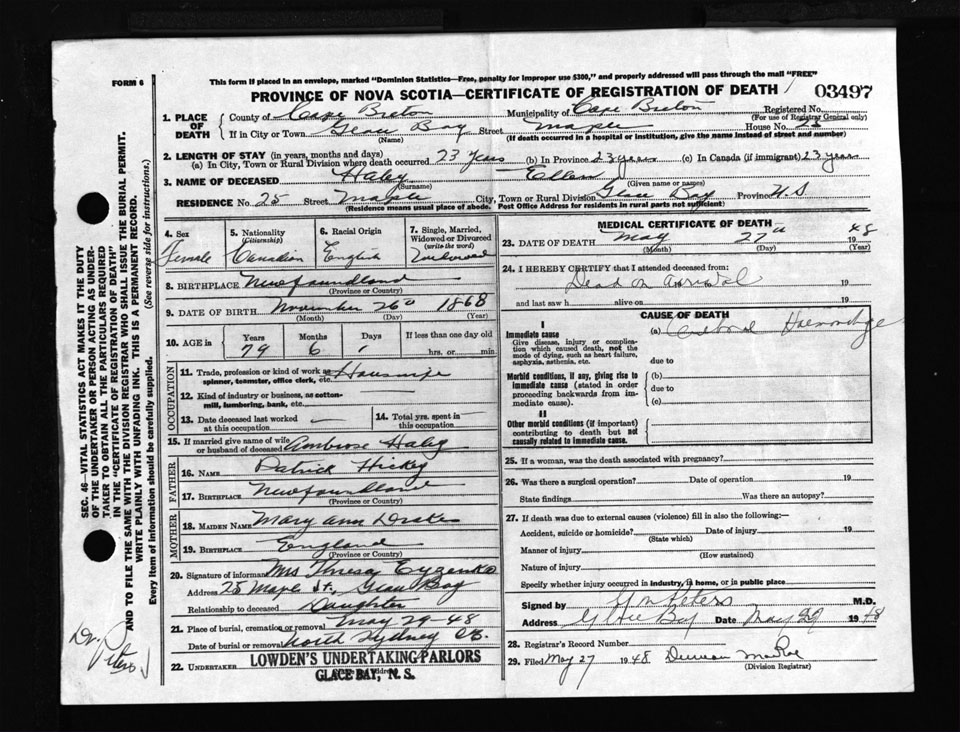 FORM 6
This form if placed in an envelope, marked "Dominion Statistics—Free, penalty for improper use $300," and properly addressed will pass through the mail "FREE"
PROVINCE OF NOVA SCOTIA—CERTIFICATE OF REGISTRATION OF DEATH
03497
1. PLACE OF DEATH
County of Cape Breton Municipality of Cape Breton Registered No.
(For use of Registrar General only)
If in City or Town Glace Bay Street Maple House No. 25
(Name) (If death occurred in a hospital or institution, give the name instead of street and number)
2. LENGTH OF STAY (in years, months and days)
(a) In City, Town or Rural Division where death occurred 23 Years (b) In Province 23 years (c) In Canada (if immigrant) 23 years
3. NAME OF DECEASED Haley Ellen
(Surname) (Given name or names)
RESIDENCE No. 25 Street Maple City, Town or Rural Division Glace Bay Province N.S
(Residence means usual place of abode. Post Office Address for residents in rural parts not sufficient)
4. Sex Female
5. Nationality (Citizenship) Canadian
6. Racial Origin English
7. Single, Married, Widowed or Divorced (write the word) Widowed
8. BIRTHPLACE Newfoundland
(Province or Country)
9. DATE OF BIRTH November 26 1868
(Month) (Day) (Year)
10. AGE in Years Months Days If less than one day old
79 6 1 hrs. or min.
OCCUPATION
11. Trade, profession or kind of work as spinner, teamster, office clerk, etc. Housewife
12. Kind of industry or business, as cotton-mill, lumbering, bank, etc.
13. Date deceased last worked at this occupation
14. Total yrs. spent in this occupation
15. If married give name of wife or husband of deceased Ambrose Haley
FATHER
16. NAME Patrick Hickey
17. BIRTHPLACE Newfoundland
(Province or Country)
MOTHER
18. MAIDEN NAME Mary Ann Drake
19. BIRTHPLACE England
(Province or Country)
20. Signature of informant Mrs Theresa
Address 25 Maple St., Glace Bay
Relationship to deceased Daughter
21. Place of burial, cremation or removal May 29-48
Date of burial or removal North Sydney C.B.
22. UNDERTAKER LOWDEN'S UNDERTAKING PARLORS
GLACE BAY, N. S.
MEDICAL CERTIFICATE OF DEATH
23. DATE OF DEATH May 27th 1948
(Month) (Day) (Year)
24. I HEREBY CERTIFY that I attended deceased from:
Dead on arrival 19
and last saw h alive on 19
CAUSE OF DEATH
I
Immediate cause
Give disease, injury or complication which caused death, not the mode of dying, such as heart failure, asphyxia, asthenia, etc.
(a) Cerebral Hemorrhage
due to
Morbid conditions, if any, giving rise to immediate cause (stated in order proceeding backwards from immediate cause).
(b)
due to
(c)
II
Other morbid conditions (if important) contributing to death but not causally related to immediate cause.
25. If a woman, was the death associated with pregnancy?
26. Was there a surgical operation? Date of operation 19
State findings Was there an autopsy?
27. If death was due to external causes (violence) fill in also the following:—
Accident, suicide or homicide? Date of injury 19
(State which)
Manner of injury
(How sustained)
Nature of injury
Specify whether injury occurred in industry, in home, or in public place
Signed by Peters M.D.
Address Glace Bay Date May 29 1948
28. Registrar's Record Number
29. Filed May 27 1948 Duncan MacRae
(Division Registrar)
SEC. 46—VITAL STATISTICS ACT MAKES IT THE DUTY
OF THE UNDERTAKER OR PERSON ACTING AS UNDERTAKER
TO OBTAIN ALL THE PARTICULARS REQUIRED
IN THE "CERTIFICATE OF REGISTRATION OF DEATH"
AND TO FILE THE SAME WITH THE DIVISION REGISTRAR WHO SHALL ISSUE THE BURIAL PERMIT.
WRITE PLAINLY WITH UNFADING INK. THIS IS A PERMANENT RECORD.
Every item of Information should be carefully supplied. (See reverse side for instructions.)
Dr. Peters